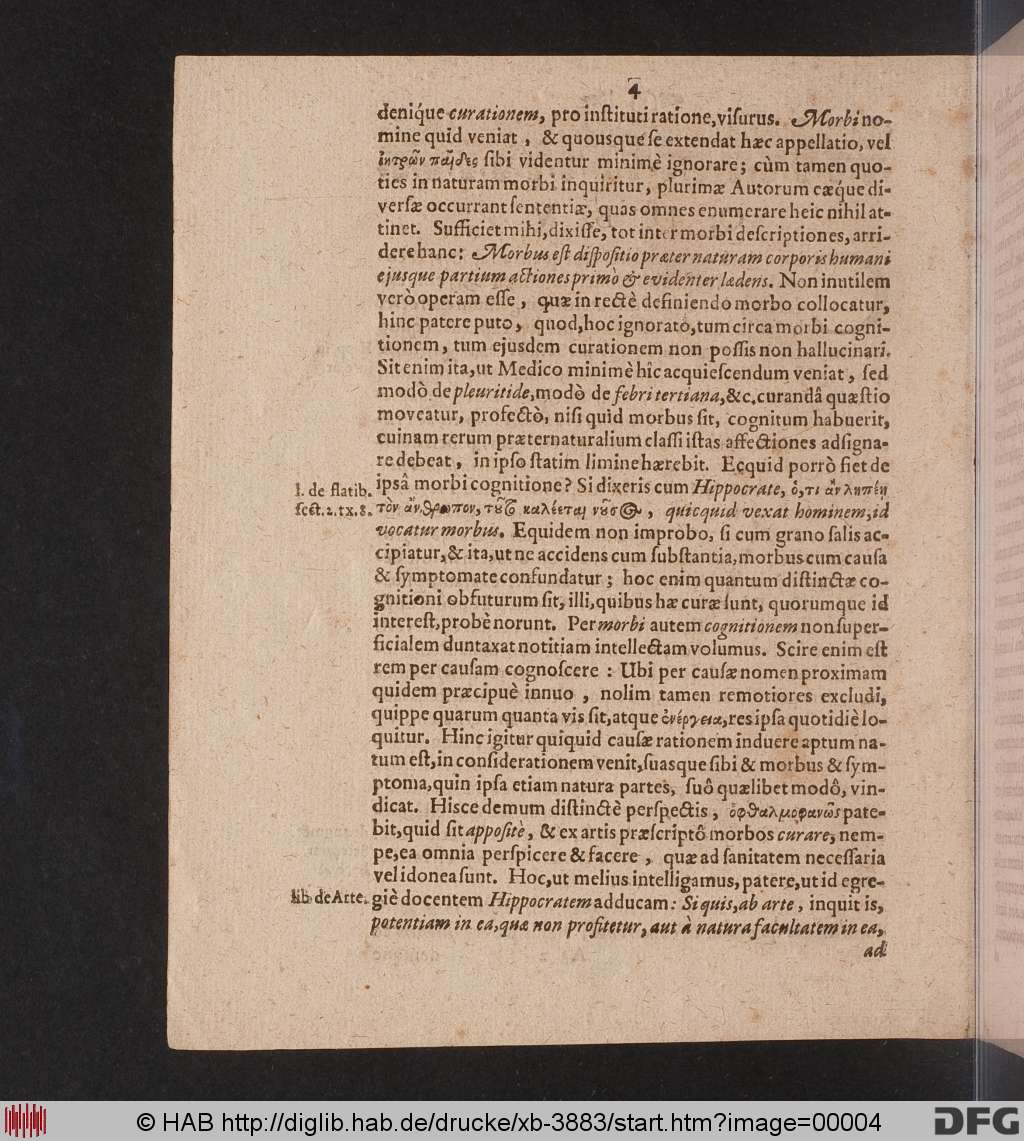 4
deniq́ue curationem, pro inſtituti ratione, viſurus. Morbi no-
mine quid veniat, & quousque ſe extendat hæc appellatio, vel
ἰητρῶν παῖδες ſibi videntur minimè ignorare; cùm tamen quo-
ties in naturam morbi inquiritur, plurimæ Autorum cæq́ue di-
verſæ occurrant ſententiæ, quas omnes enumerare heic nihil at-
tinet. Sufficiet mihi, dixiſſe, tot inter morbi deſcriptiones, arri-
dere hanc: Morbus eſt diſpoſitio præter naturam corporis humani
ejusque partium actiones primò & evidenter lædens. Non inutilem
verò operam eſſe, quæ in rectè definiendo morbo collocatur,
hinc patere puto, quod, hoc ignorato, tum circa morbi cogni-
tionem, tum ejusdem curationem non poſſis non hallucinari.
Sit enim ita, ut Medico minimè hîc acquieſcendum veniat, ſed
modò de pleuritide, modò de febri tertiana, &c. curandâ quæſtio
moveatur, profectò, niſi quid morbus ſit, cognitum habuerit,
cuinam rerum præternaturalium claſſi iſtas affectiones adſigna-
re debeat, in ipſo ſtatim limine hærebit. Ecquid porrò fiet de
l. de flatib. ipsâ morbi cognitione? Si dixeris cum Hippocrate, ὅ,τι ἂν λυπέῃ
ſect. 2. tx. 8. τὸν ἄνθρωπον, τοῦτο καλέεται νοῦσος, quicquid vexat hominem, id
vocatur morbus. Equidem non improbo, ſi cum grano ſalis ac-
cipiatur, & ita, ut ne accidens cum ſubſtantia, morbus cum cauſa
& ſymptomate confundatur; hoc enim quantum diſtinctæ co-
gnitioni obfuturum ſit, illi, quibus hæ curæ ſunt, quorumque id
intereſt, probè norunt. Per morbi autem cognitionem non ſuper-
ficialem duntaxat notitiam intellectam volumus. Scire enim eſt
rem per cauſam cognoſcere: Ubi per cauſæ nomen proximam
quidem præcipuè innuo, nolim tamen remotiores excludi,
quippe quarum quanta vis ſit, atque ἐνέργεια, res ipſa quotidiè lo-
quitur. Hinc igitur quiquid cauſæ rationem induere aptum na-
tum eſt, in conſiderationem venit, ſuasque ſibi & morbus & ſym-
ptoma, quin ipſa etiam natura partes, ſuô quælibet modô, vin-
dicat. Hisce demum diſtinctè perſpectis, ὀφθαλμοφανῶς pate-
bit, quid ſit appoſitè, & ex artis præſcriptô morbos curare, nem-
pe, ea omnia perſpicere & facere, quæ ad ſanitatem neceſſaria
vel idonea ſunt. Hoc, ut melius intelligamus, patere, ut id egre-
lib. de Arte. giè docentem Hippocratem adducam: Si quis, ab arte, inquit is,
potentiam in ea, quæ non profitetur, aut à natura facultatem in ea,
ad
© HAB http://diglib.hab.de/drucke/xb-3883/start.htm?image=00004
DFG